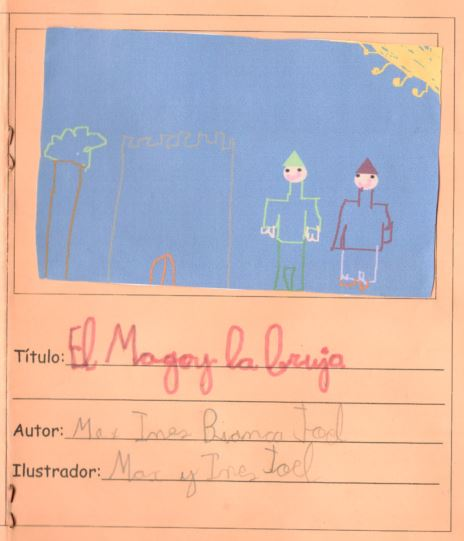 Título: El Mago y la bruja
Autor: Max Ines Bianca Joel
Ilustrador: Max y Ines Joel